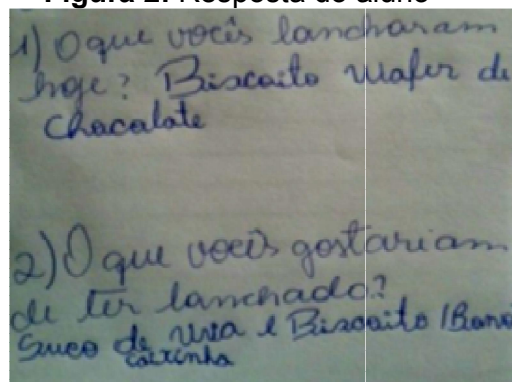 Figura 2. Resposta do aluno
1) O que vocês lancharam
hoje? Biscoito wafer de
chacalate
2) O que vocês gostariam
de ter lanchado?
Suco de uva e Biscoito /
coxinha